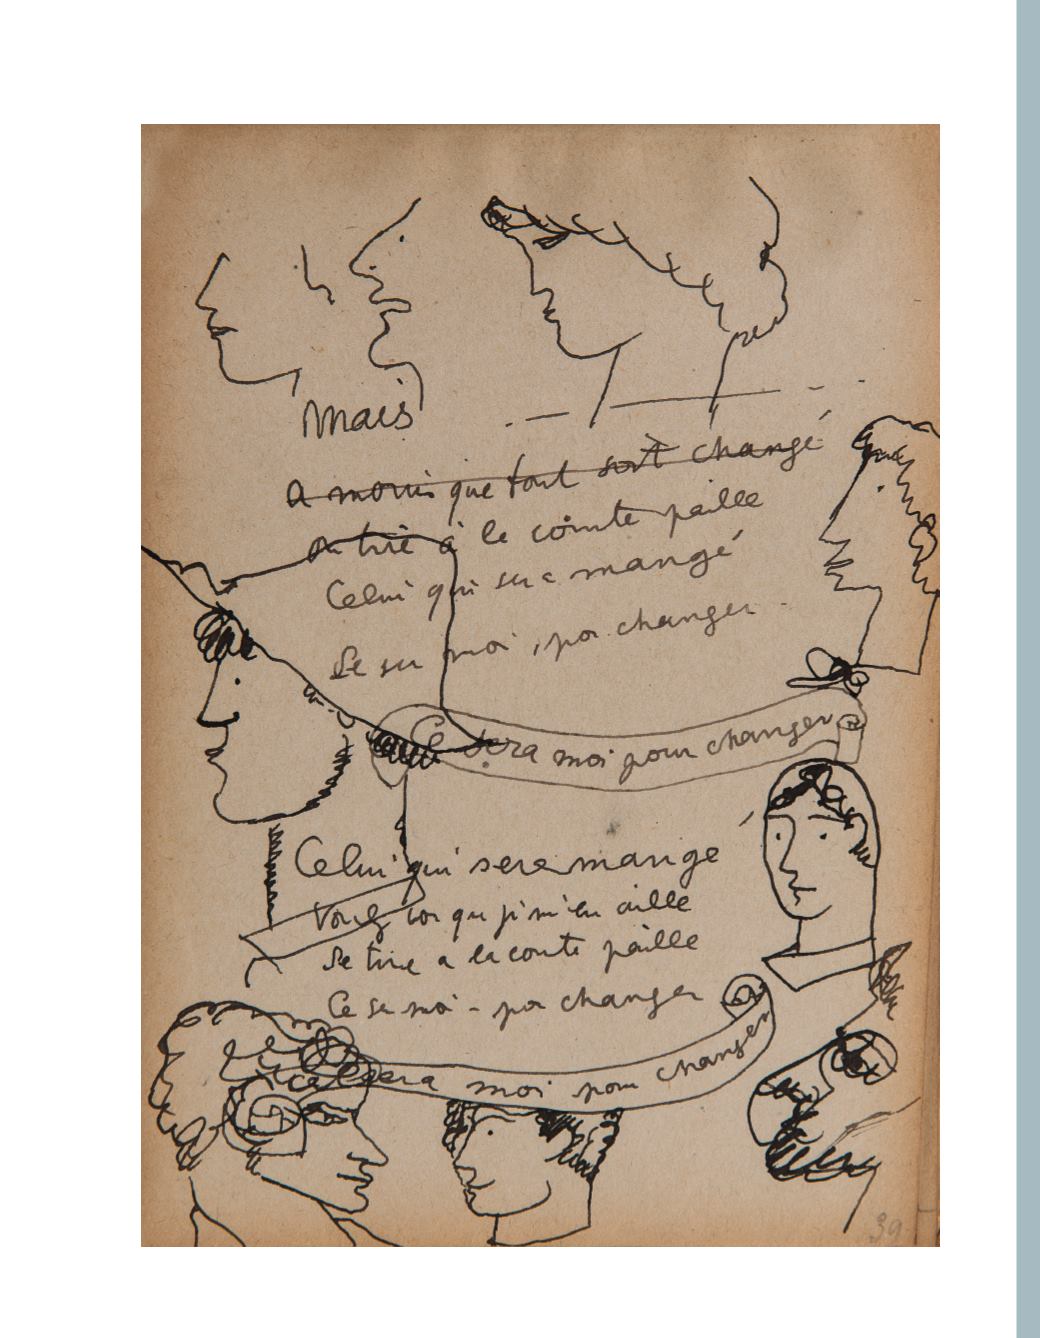 Mais
a moins que tout soit changé
on tire à la courte paille
Celui qui sera mangé
Se su moi, por changer
Ce sera moi pour changer
Celui qui sera mange
Voulez
que j' m'en aille
Se tire a la courte paille
Ce se moi - por changer
ce sera moi pour changer
39